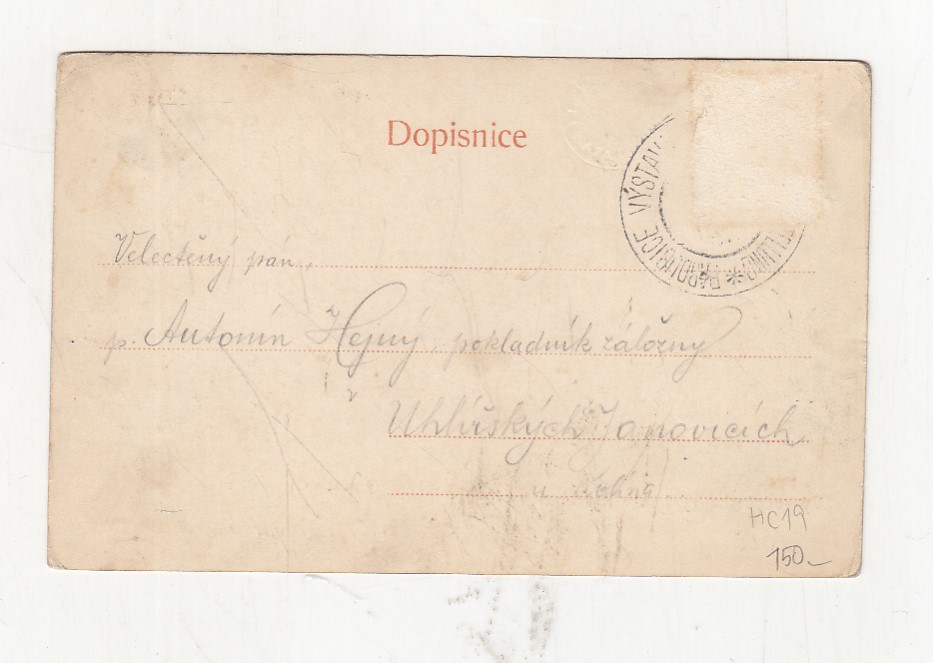 Dopisnice
PARDUBICE VÝSTAV
Velectěný pán,
p. Antonín Hejný, pokladník záložny
v
Uhlířských Janovicích
u Kolína
HC19
150.-